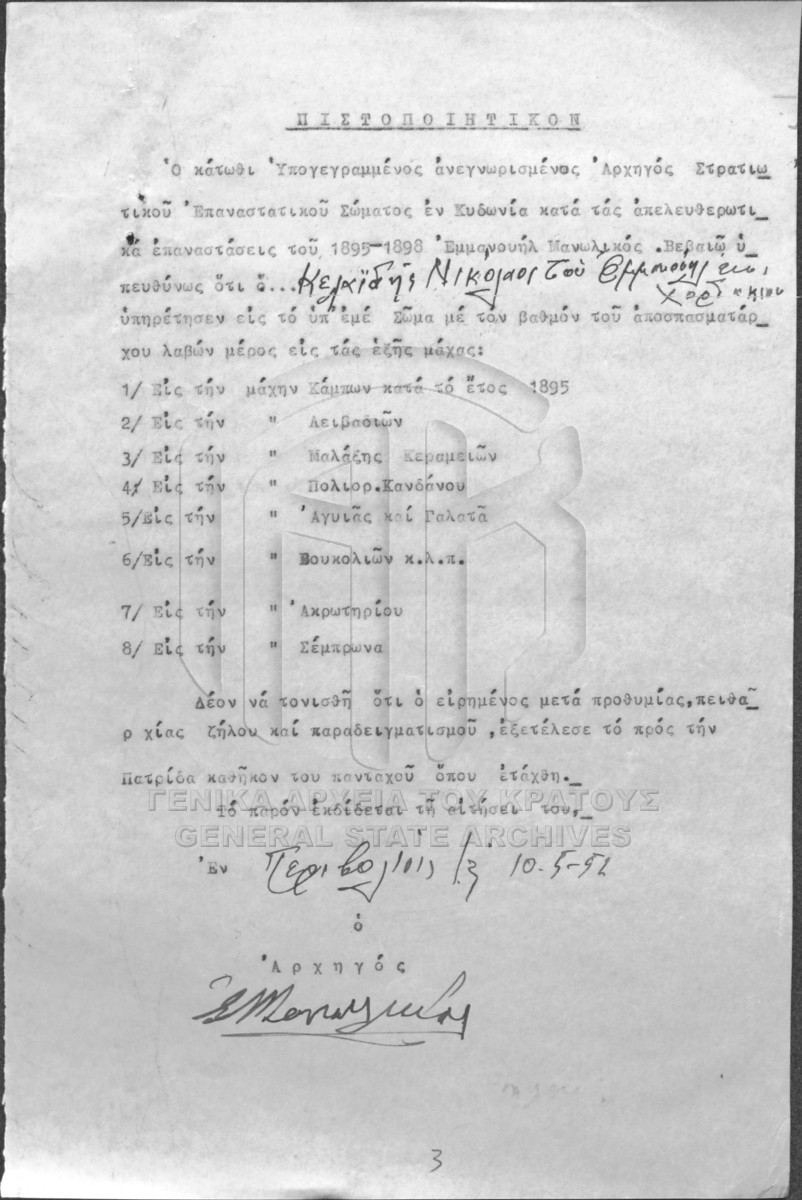 ΠΙΣΤΟΠΟΙΗΤΙΚΟΝ
Ὁ κάτωθι Ὑπογεγραμμένος ἀνεγνωρισμένος Ἀρχηγός Στρατιω
τικοῦ Ἐπαναστατικοῦ Σώματος ἐν Κυδωνία κατά τάς ἀπελευθερωτι_
κά ἐπαναστάσεις τοῦ 1895-1898 Ἐμμανουήλ Μανωλικός .Βεβαιῶ ὑ_
πευθύνως ὅτι ὁ... Κελαϊδῆς Νικόλαος τοῦ Ἐμμανουήλ ἐκ
ὑπηρέτησεν εἰς τό ὑπ'ἐμέ Σῶμα μέ τόν βαθμόν τοῦ ἀποσπασματάρ_
χου λαβών μέρος εἰς τάς ἑξῆς μάχας:
1/ Εἰς τήν μάχην Κάμπων κατά τό ἔτος 1895
2/ Εἰς τήν " Λειβαδιῶν
3/ Εἰς τήν " Μαλάξης Κεραμειῶν
4/ Εἰς τήν " Πολιορ.Κανδάνου
5/Εἰς τήν " Ἀγυιᾶς καί Γαλατᾶ
6/Εἰς τήν " Βουκολιῶν κ.λ.π.
7/ Εἰς τήν " Ἀκρωτηρίου
8/ Εἰς τήν " Σέμπρωνα
Δέον νά τονισθῆ ὅτι ὁ εἰρημένος μετά προθυμίας,πειθα_
ρ χίας ζήλου καί παραδειγματισμοῦ ,ἐξετέλεσε τό πρός τήν
Πατρίδα καθῆκον του πανταχοῦ ὅπου ἐτάχθη._
ΓΕΝΙΚΑ ΑΡΧΕΙΑ ΤΟΥ ΚΡΑΤΟΥΣ
Τό παρόν ἐκδίδεται τῆ αἰτήσει του,_
GENERAL STATE ARCHIVES
Ἐν Περιβολίοις τῇ 10-5-52
ὁ
Ἀρχηγός
Ε Μανωλικός
3